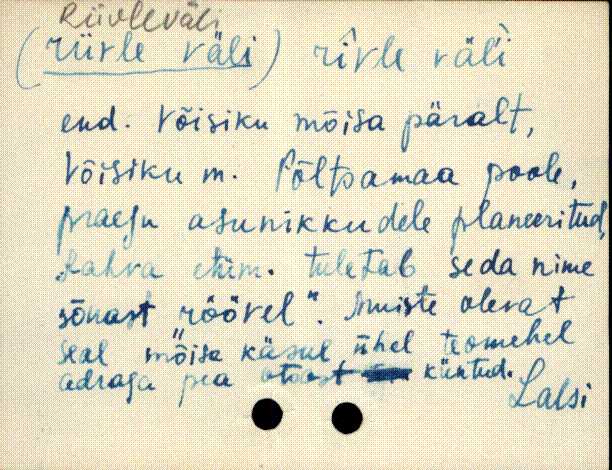 Riivleväli
(riivle väli) rîvle väl'i
end. Võisiku mõisa päralt,
Võisiku m. Põltsamaa poole,
praegu asunikkudele planeeritud,
"Rahva etüm. tuletab seda nime
sõnast "röövel". Muiste olevat
seal mõisa käsul ühel teomehel
adraga pea otsast küntud.
Lalsi